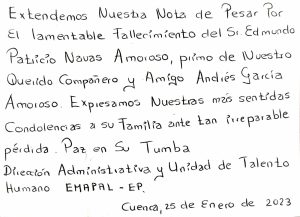 Extendemos Nuestra Nota de Pesar Por
El lamentable Fallecimiento del Sr. Edmundo
Patricio Navas Amoroso, primo de Nuestro
Querido Compañero y Amigo Andrés García
Amoroso. Expresamos Nuestras más sentidas
Condolencias a su Familia ante tan irreparable
pérdida. Paz en Su Tumba
Dirección Administrativa y Unidad de Talento
Humano EMAPAL - EP.
Cuenca, 25 de Enero de 2023